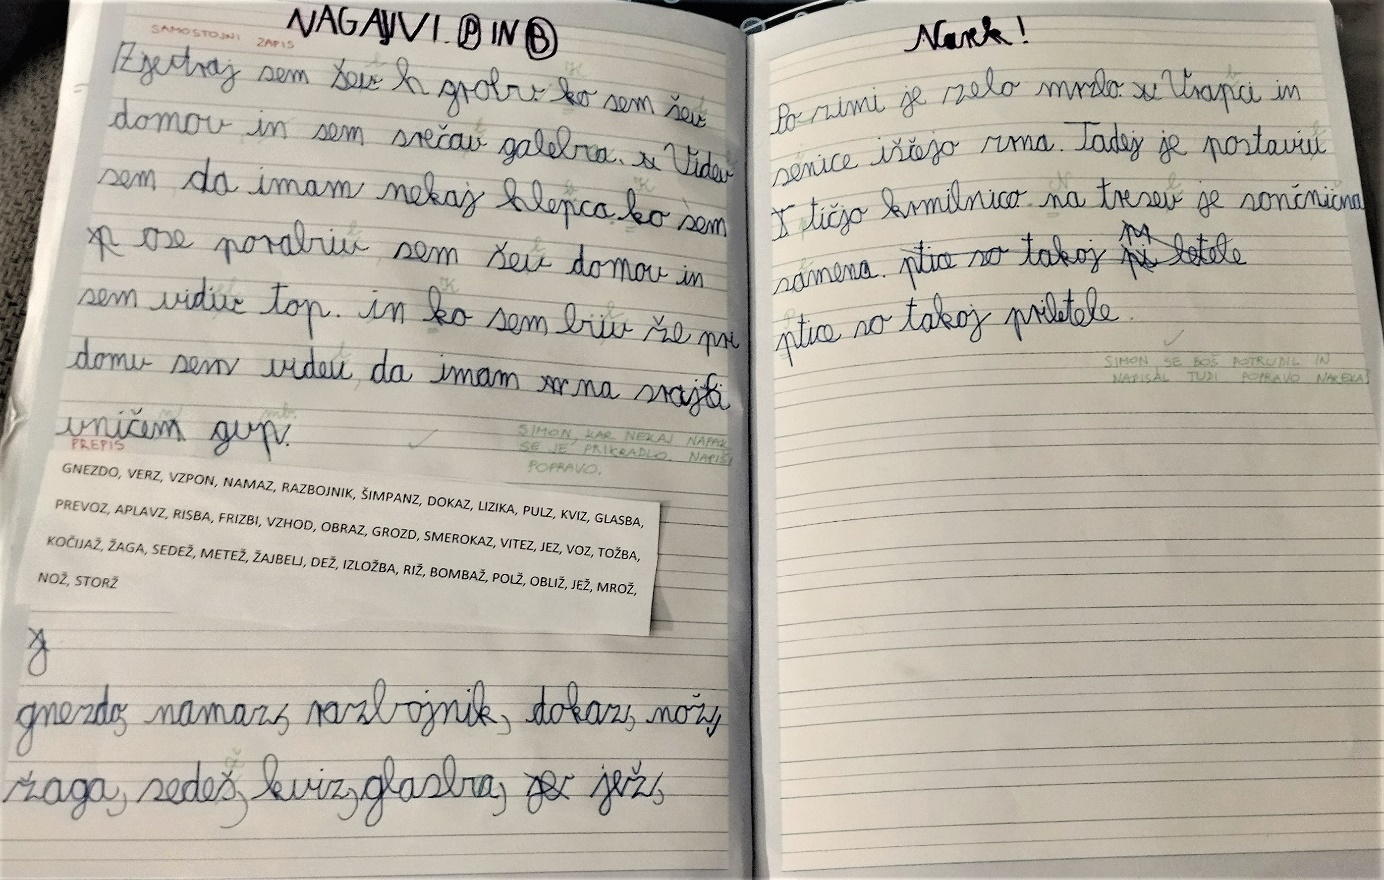 NAGAJIVI P IN B
SAMOSTOJNI ZAPIS
Zjutraj sem šeu k grobu ko sem šeu
domov in sem srečau galeba. Videu
sem da imam nekaj klepca. ko sem
ose porabiu sem šeu domov in
sem vidiu top. in ko sem biu že pri
domu sem videu da imam na srajti
uničem gup.
PREPIS
SIMON, KAR NEKAJ NAPAK
SE JE PRIKRADLO. NAPIŠI
POPRAVO.
GNEZDO, VERZ, VZPON, NAMAZ, RAZBOJNIK, ŠIMPANZ, DOKAZ, LIZIKA, PULZ, KVIZ, GLASBA,
PREVOZ, APLAVZ, RISBA, FRIZBI, VZHOD, OBRAZ, GROZD, SMEROKAZ, VITEZ, JEZ, VOZ, TOŽBA,
KOČIJAŽ, ŽAGA, SEDEŽ, METEŽ, ŽAJBELJ, DEŽ, IZLOŽBA, RIŽ, BOMBAŽ, POLŽ, OBLIŽ, JEŽ, MROŽ,
NOŽ, STORŽ
gnezdo, namaz, razbojnik, dokaz, nož,
žaga, sedeš, kviz, glasba, jež,
Narek!
Po zimi je zelo mrzlo Vrapci in
senice iščejo zrna. Tadej je postaviu
tičjo krmilnico. na tresev je sončnična
samena. ptice so takoj letele
ptice so takoj priletele.
SIMON SE BOŠ POTRUDIL IN
NAPISAL TUDI POPRAVO NAREKA?